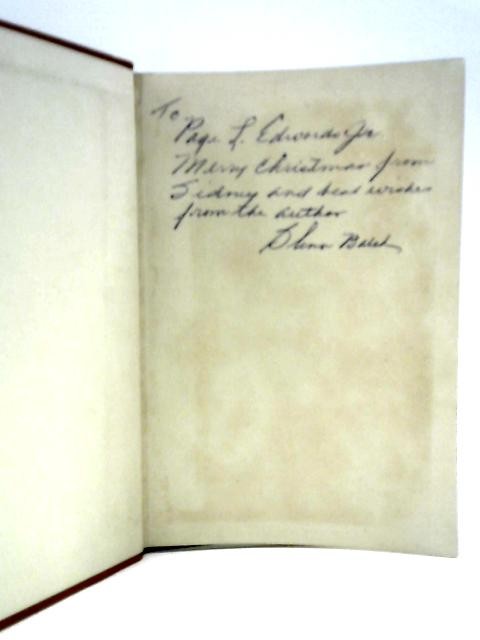 To
Page L. Edwards Jr.
Merry Christmas from
Sidney and best wishes
from the author
Glenn Balch